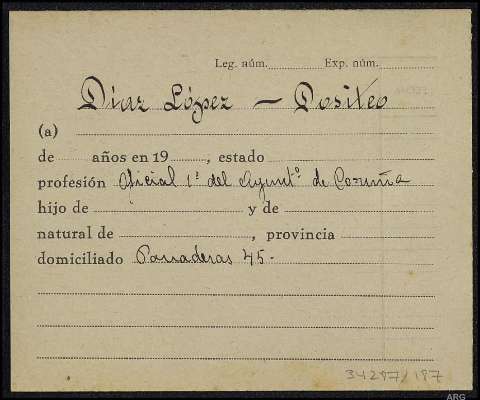 Leg. núm. Exp. núm.
Diaz López — Dositeo
(a)
de años en 19 , estado
profesión Oficial 1º del Ayuntº de Coruña
hijo de y de
natural de , provincia
domiciliado Panaderas 45.
34297/197
ARG